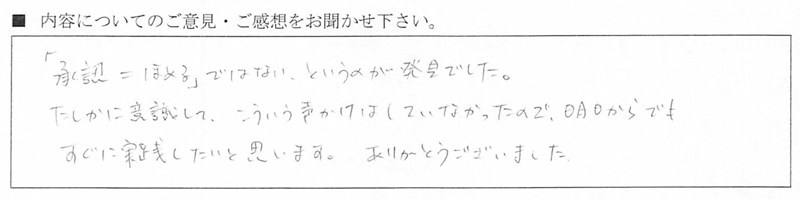 ■ 内容についてのご意見・ご感想をお聞かせ下さい。
「承認=ほめる」ではない、というのが発見でした。
たしかに意識して、こういう声かけはしていなかったので、OAOからでも
すぐに実践したいと思います。 ありがとうございました。